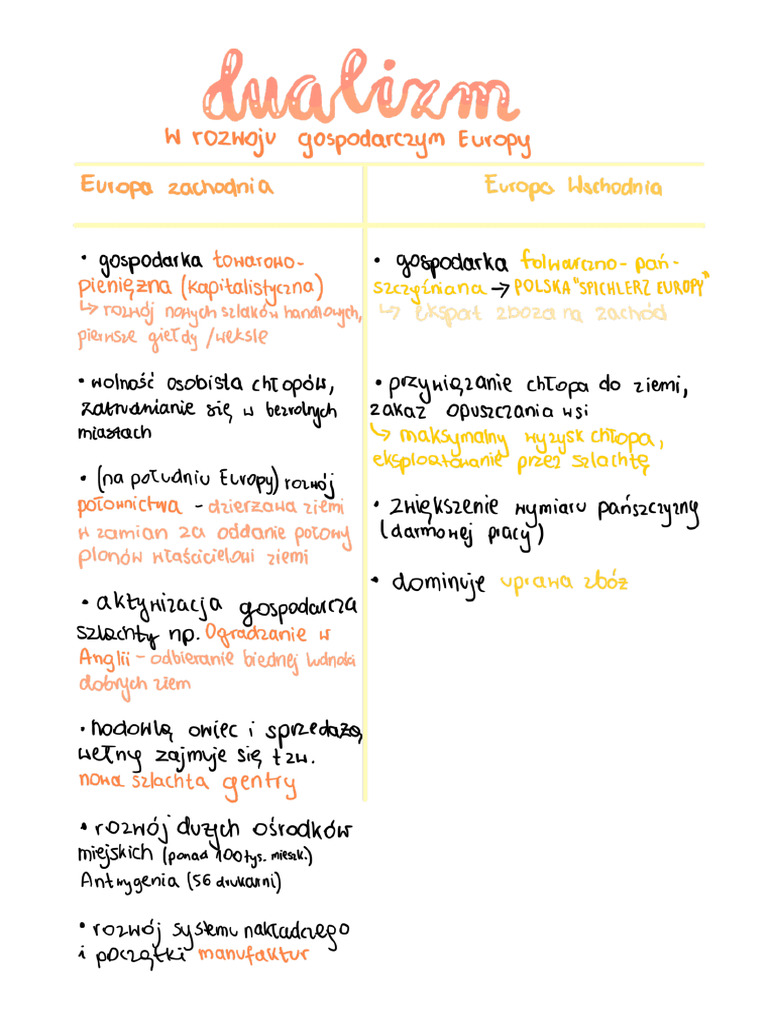 dualizm
w rozwoju gospodarczym Europy
Europa zachodnia
• gospodarka towarowo-
pieniężna (kapitalistyczna)
↳ rozwój nowych szlaków handlowych,
pierwsze giełdy /weksle
• wolność osobista chłopów,
zatrudnianie się w bezrolnych
miastach
• (na południu Europy) rozwój
połownictwa - dzierżawa ziemi
w zamian za oddanie połowy
plonów właścicielowi ziemi
• aktywizacja gospodarcza
szlachty np. Ogradzanie w
Anglii - odbieranie biednej ludności
dobrych ziem
• hodowlą owiec i sprzedażą
wełny zajmuje się tzw.
nowa szlachta gentry
• rozwój dużych ośrodków
miejskich (ponad 100 tys. mieszk.)
Antwygenia (56 drukarni)
• rozwój systemu nakładczego
i początki manufaktur
Europa Wschodnia
• gospodarka folwarczno-pań-
szczyźniana → POLSKA "SPICHLERZ EUROPY"
↳ eksport zboża na zachód
• przywiązanie chłopa do ziemi,
zakaz opuszczania wsi
↳ maksymalny wyzysk chłopa,
eksploatowanie przez szlachtę
• zwiększenie wymiaru pańszczyzny
(darmowej pracy)
• dominuje uprawa zbóż